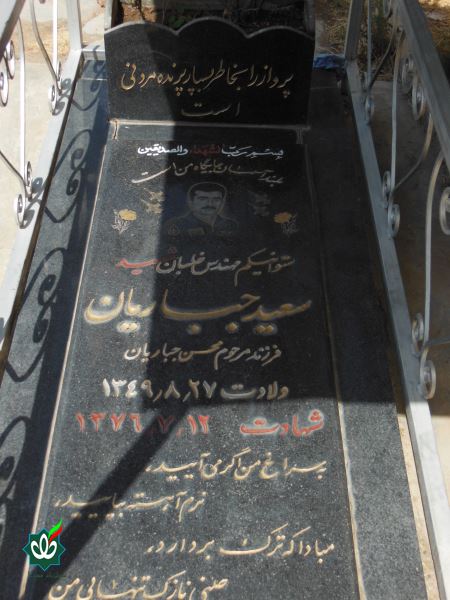 پرواز را بخاطر بسپار پرنده مردنی
است
بسم رب الشهداء والصدیقین
جایگاه من است
ستوانیکم مهندس خلبان شهید
سعید جباریان
فرزند مرحوم محسن جباریان
ولادت ۱۳۴۹٫۸٫۲۷
شهادت ۱۳۷۶٫۷٫۱۲
بسراغ من گر می آیید،
نرم آهسته بیایید،
مبادا که ترک بردارد،
چینی نازک تنهایی من